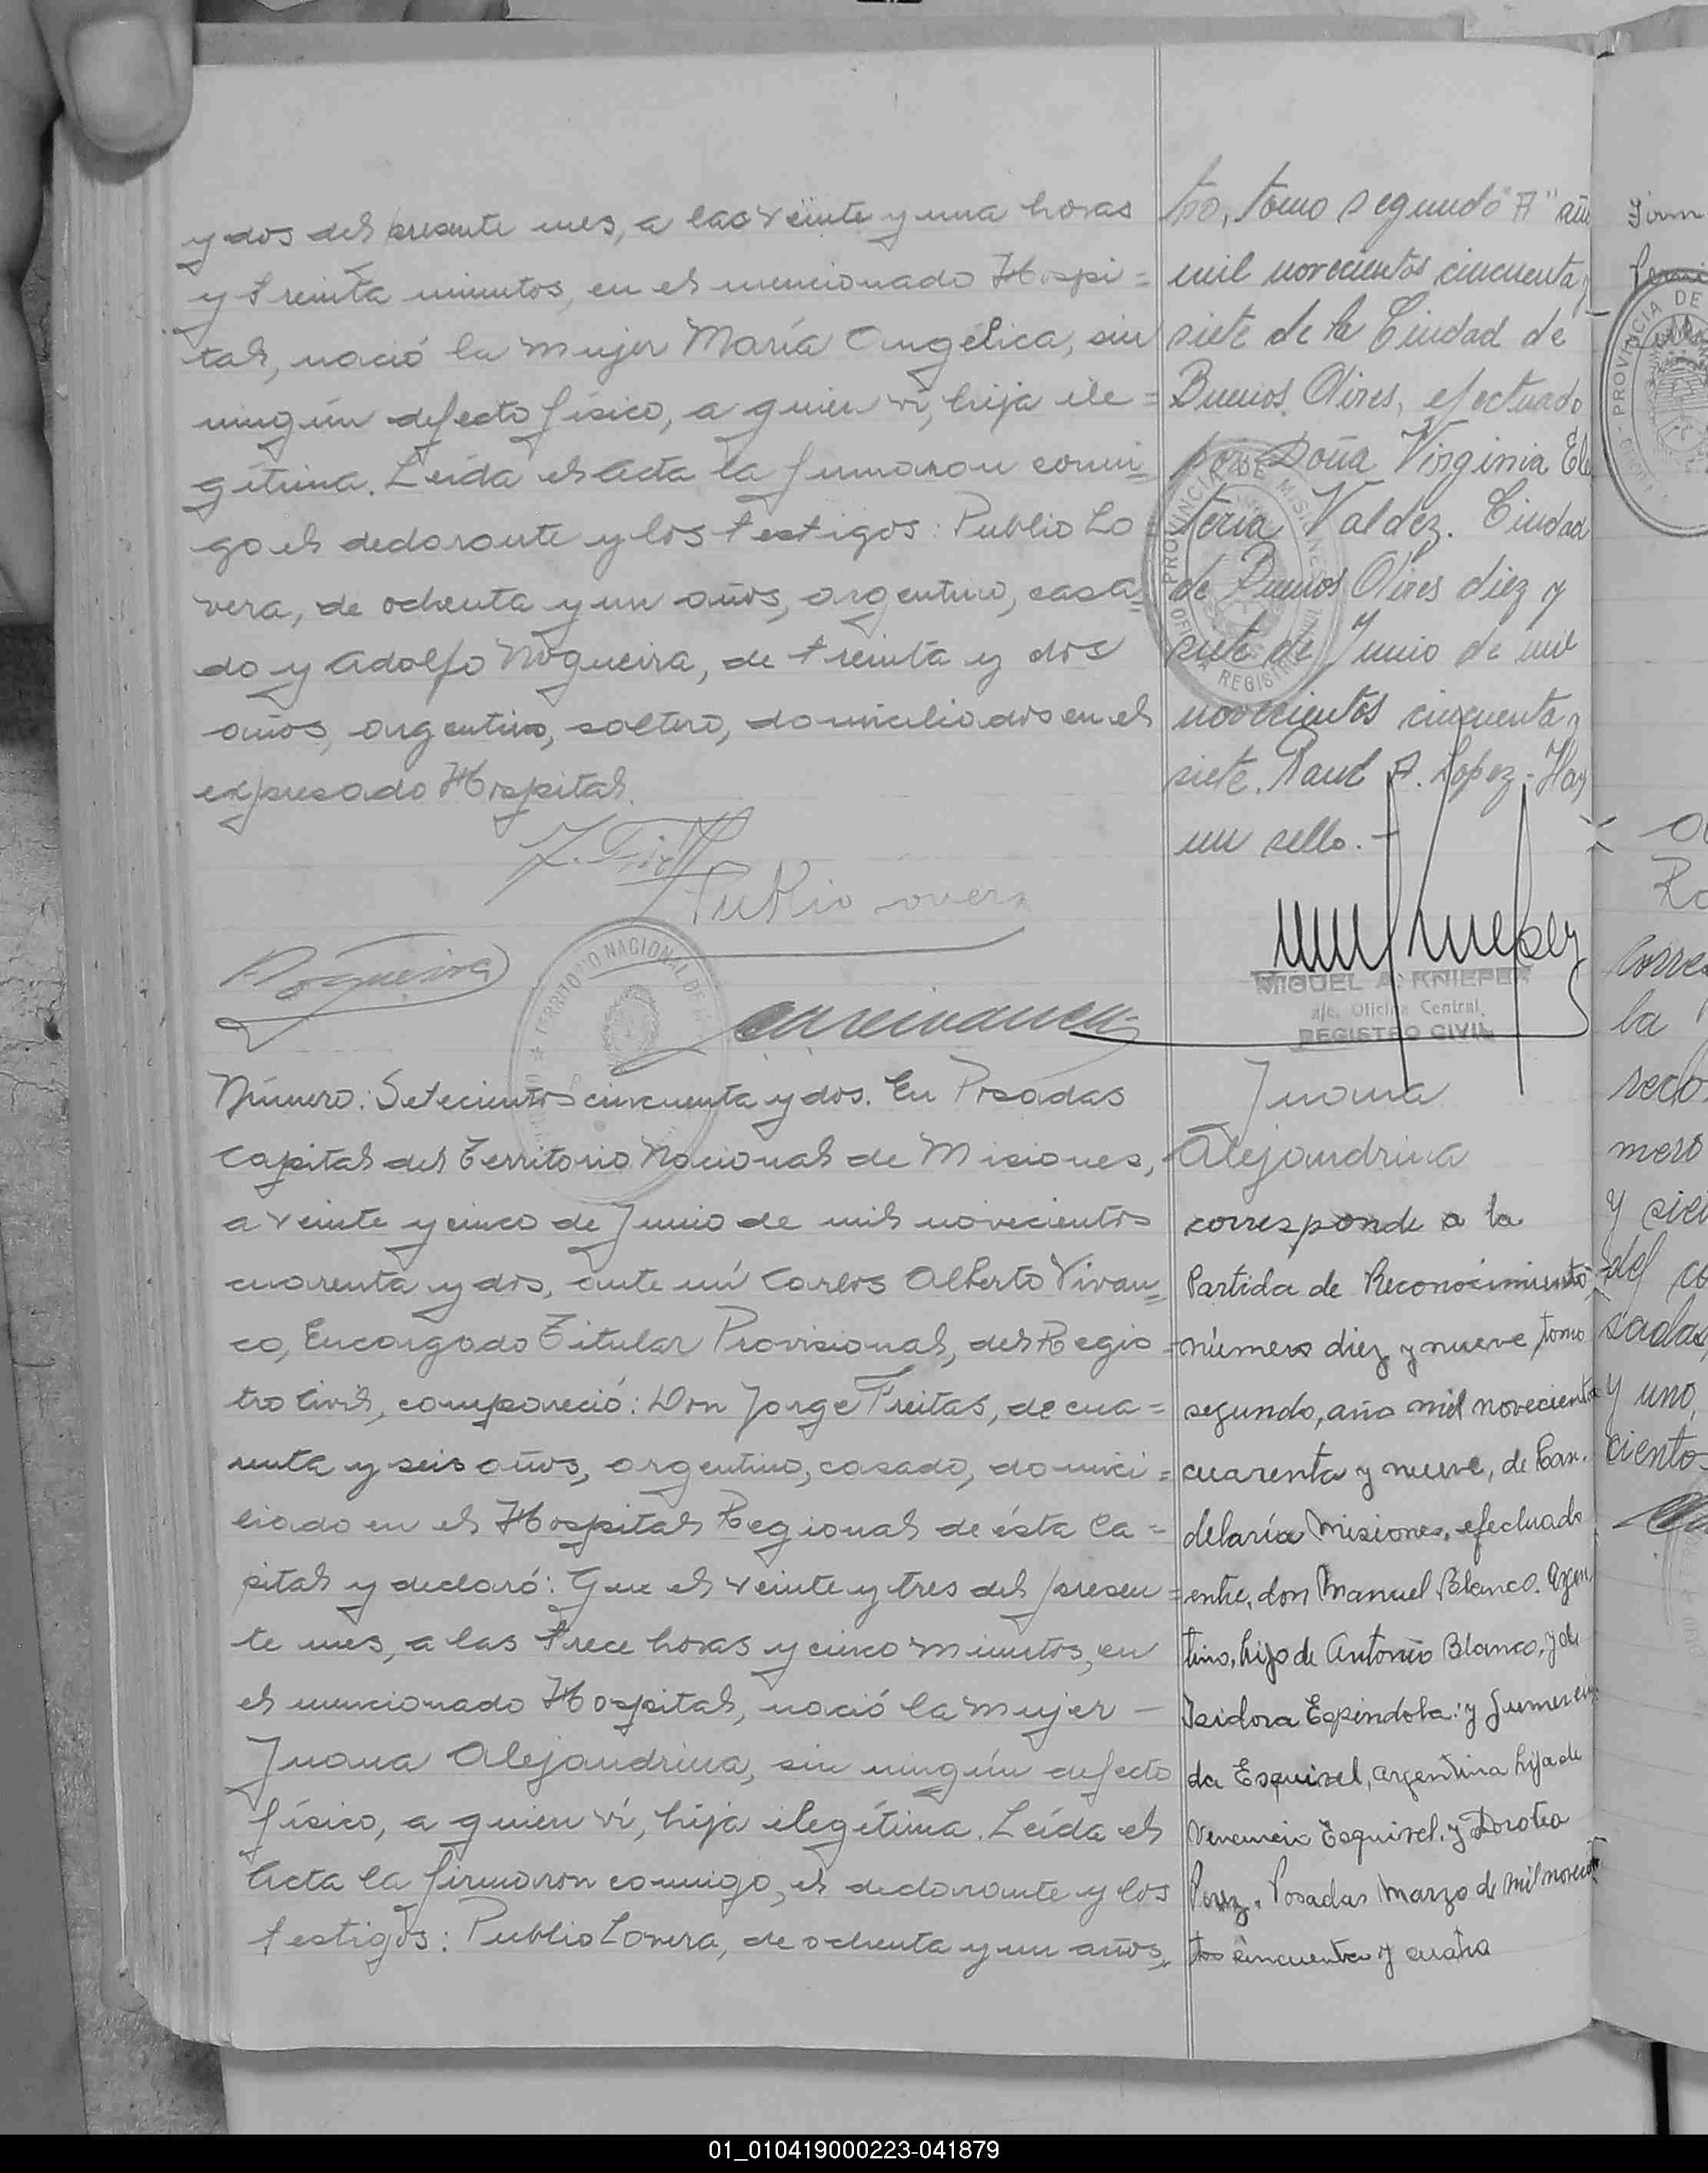 y dos del presente mes, a las veinte y una horas
y treinta minutos, en el mencionado Hospi=
tal, nació la mujer María Angélica, sin
ningún defecto físico, a quien ví, hija ile=
gítima. Leída el acta la firmaron conmi=
go el declarante y los testigos: Publio Lo
vera, de ochenta y un años, argentino, casa=
do y Adolfo Nogueira, de treinta y dos
años, argentino, soltero, domiciliados en el
expresado Hospital.
Publio overa
Nogueira
TERRITORIO NACIONAL DE
Número: Setecientos cincuenta y dos. En Posadas
Capital del Territorio Nacional de Misiones,
a veinte y cinco de Junio de mil novecientos
cuarenta y dos, ante mí Carlos Alberto Vivan=
co, Encargado Titular Provisional, del Regis
tro Civil, compareció: Don Jorge Freitas, de cua=
renta y seis años, argentino, casado, domici=
liado en el Hospital Regional de ésta Ca=
pital y declaró: Que el veinte y tres del presen=
te mes, a las trece horas y cinco minutos, en
el mencionado Hospital, nació la mujer —
Juana Alejandrina, sin ningún defecto
físico, a quien ví, hija ilegítima. Leída el
acta la firmaron conmigo, el declarante y los
testigos: Publio Lovera, de ochenta y un años,
tro, tomo segundo "A" año
mil novecientos cincuenta y
siete de la Ciudad de
Buenos Aires, efectuado
por Doña Virginia Ele
teria Valdez. Ciudad
de Buenos Aires diez y
siete de Junio de mil
novecientos cincuenta y
siete. Raul A. Lopez.- Hay
un sello.-
PROVINCIA DE MISIONES
OFICINA REGISTRO
MIGUEL A. KNIEPER
a/c. Oficina Central
REGISTRO CIVIL
Juana
Alejandrina
corresponde a la
Partida de Reconocimiento
número diez y nueve, tomo
segundo, año mil novecientos
cuarenta y nueve, de Can.
delaría Misiones, efectuado
entre, don Manuel Blanco. Argen
tino, hijo de Antonio Blanco, y de
Isidora Espindola: y Gumercin
da Esquivel, argentina hija de
Venancio Esquivel. y Dorotea
Perez. Posadas Marzo de mil novecien
tos cincuenta y cuatro
PROVINCIA DE
la
mero
y uno
01_010419000223-041879